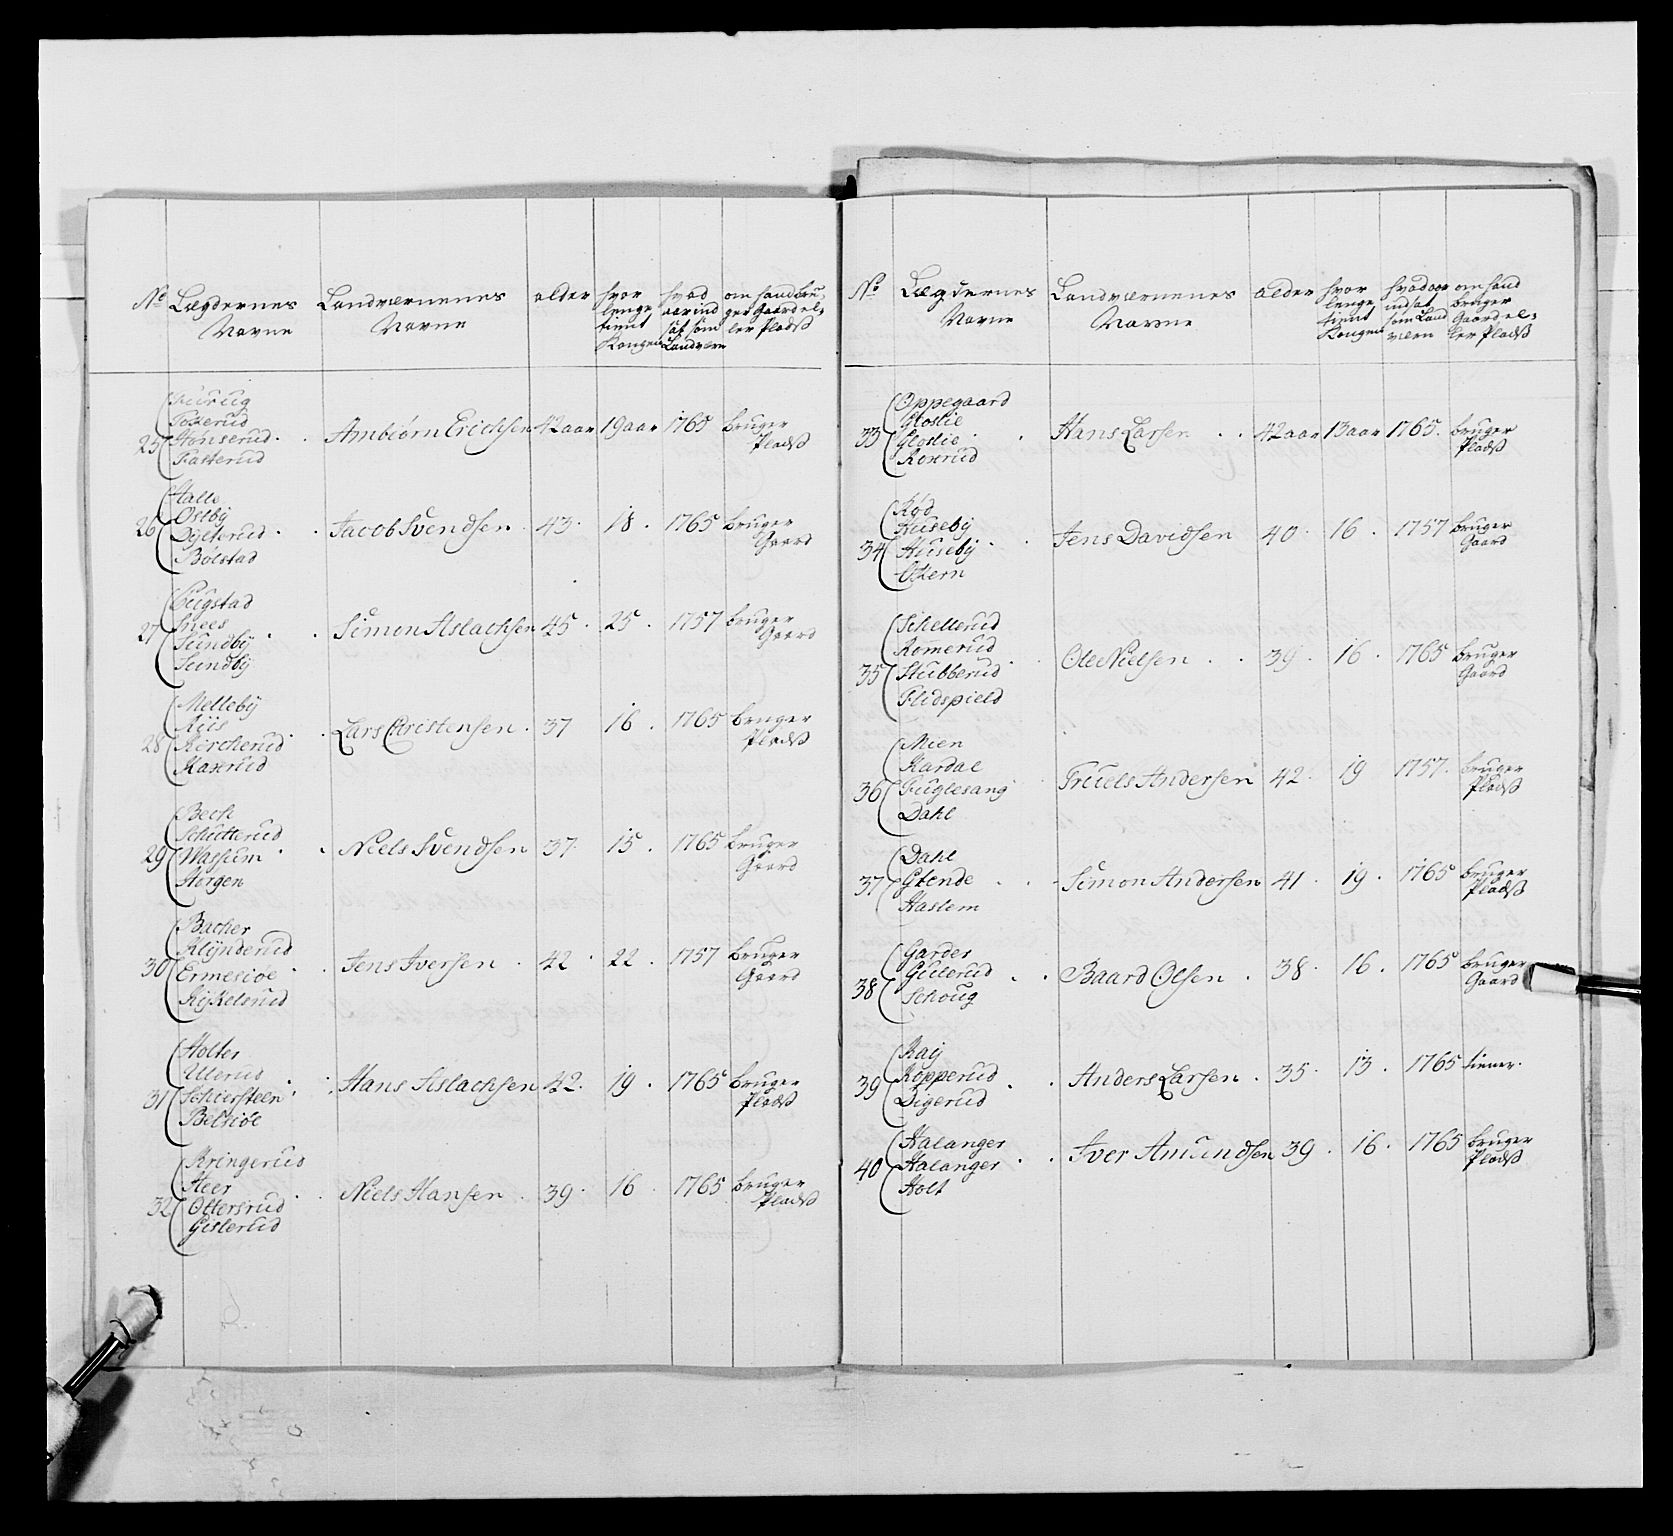 No Lægdernes Navne | Landværnenes Navne | alder | hvor lenge tient Kongen | hvad aar ind sat som Landværn | om hand bruger Gaard eller Pladß
25 Tokerud Honserud Fasterud | Ambiørn Erichsen | 42 aar | 19 aar | 1765 | bruger Pladß
26 Halle Østbÿ Dÿlterud Bølstad | Jacob Svendsen | 43 | 18 | 1765 | bruger Gaard
27 Snees Sundbÿ Sundbÿ | Simon Aslachsen | 45 | 25 | 1757 | bruger Gaard
28 Mellebÿ Riis Kircherud Kaxrud | Lars Christensen | 37 | 16 | 1765 | bruger Pladß
29 Bech Schutterud Wassum Horgen | Niels Svendsen | 37 | 15 | 1765 | bruger Gaard
30 Bacher Klÿnderud Ermesiøe Rÿkelsrud | Jens Iversen | 42 | 22 | 1757 | bruger Gaard
31 Holter Ullerud Schiersteen Belsiøe | Hans Aslachsen | 42 | 19 | 1765 | bruger Pladß
32 Kringerud Heer Ottersrud Gislerud | Niels Hansen | 39 | 16 | 1765 | bruger Pladß
No Lægdernes Navne | Landværnenes Navne | alder | hvor lenge tient Kongen | hvad aar indsat som Landværn | om hand bruger Gaard eller Pladß
33 Oppegaard Gloslie Gloslie Roxrud | Hans Larsen | 42 aar | 13 aar | 1765 | bruger Pladß
34 Rød Husebÿ Husebÿ Ottern | Jens Davidsen | 40 | 16 | 1757 | bruger Gaard
35 Schellerud Romerud Stubberud Flidspield | Ole Nielsen | 39 | 16 | 1765 | bruger Gaard
36 Mien Kardal Fuglesang Dahl | Truels Andersen | 42 | 19 | 1757 | bruger Pladß
37 Dahl Glende Haslem | Simon Andersen | 41 | 19 | 1765 | bruger Pladß
38 Garder Gulerud Schoug | Baard Olsen | 38 | 16 | 1765 | bruger Gaard
39 Kaÿ Kopperud Digerud | Anders Larsen | 35 | 13 | 1765 | tiener
40 Halanger Halanger Holt | Iver Amundsen | 39 | 16 | 1765 | bruger Pladß